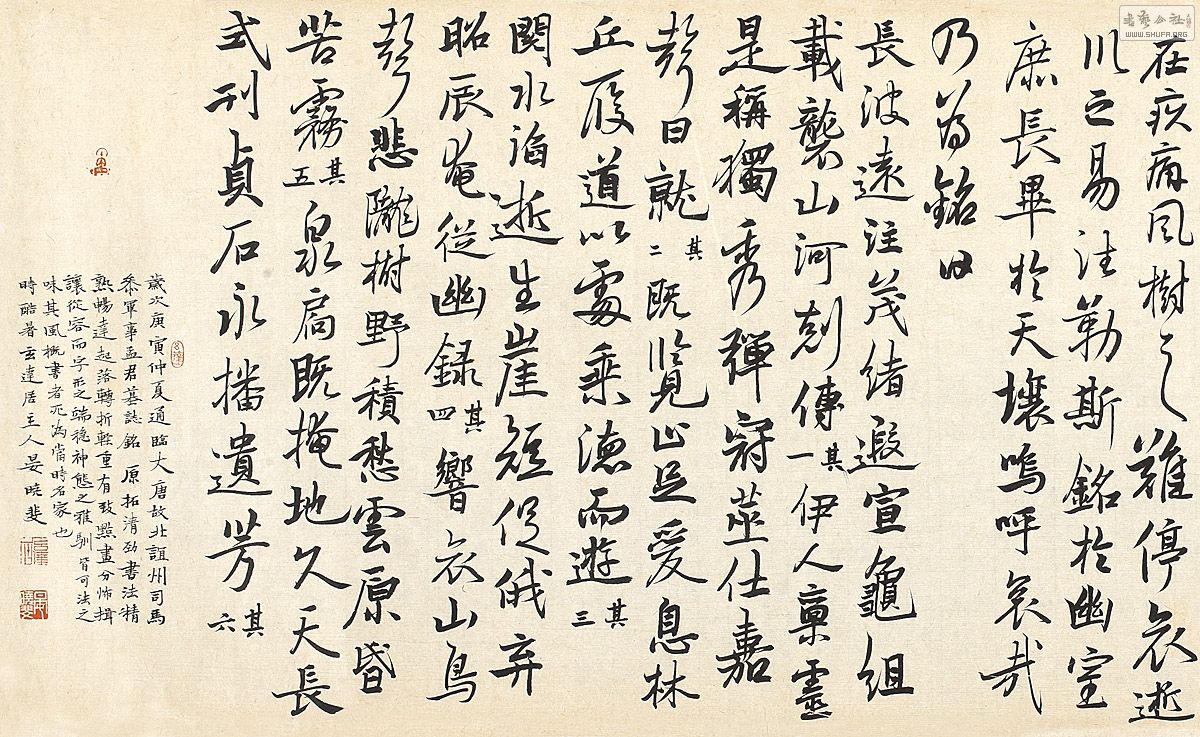 在疾痛風樹之難停哀逝
川之易往勒斯銘於幽室
庶長畢於天壤嗚呼哀哉
乃為銘曰
長波遠注茂緒遐宣龜組
載襲山河刻傳其一伊人稟靈
是稱獨秀彈冠莅仕嘉
聲日就其二既覽止足爰息林
丘履道以處乘德而遊其三
閱水滔逝生崖短促俄弃
昭辰奄從幽錄其四響哀山鳥
聲悲隴樹野積愁雲原昏
苦霧其五泉扃既掩地久天長
式刊貞石永播遺芳其六
歲次庚寅仲夏通臨大唐故北誼州司馬
叅軍事孟君墓誌銘 原拓清勁書法精
熟暢達起落轉折輕重有致點畫分佈揖
讓從容而字形之端穩神態之雅馴皆可法之
味其風概書者元為當時名家也
時酷暑玄達居主人晏曉斐
WWW.SHUFA.ORG